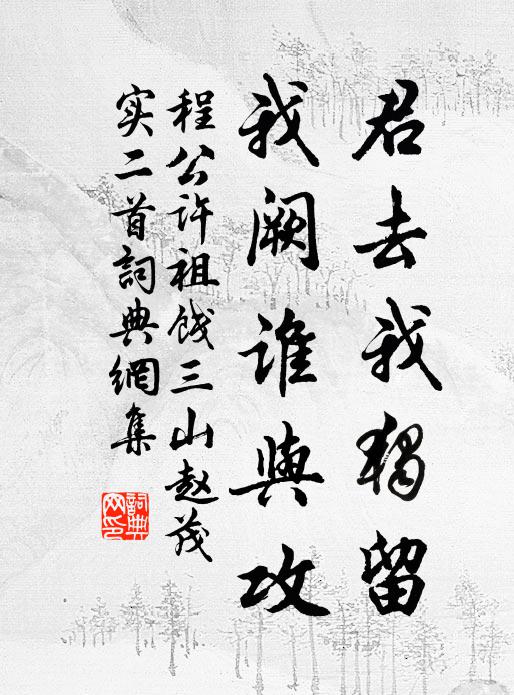 君去我獨留
我阙谁與攻
程公许祖饯三山赵茂
实二首詞典網集
詞典
网印